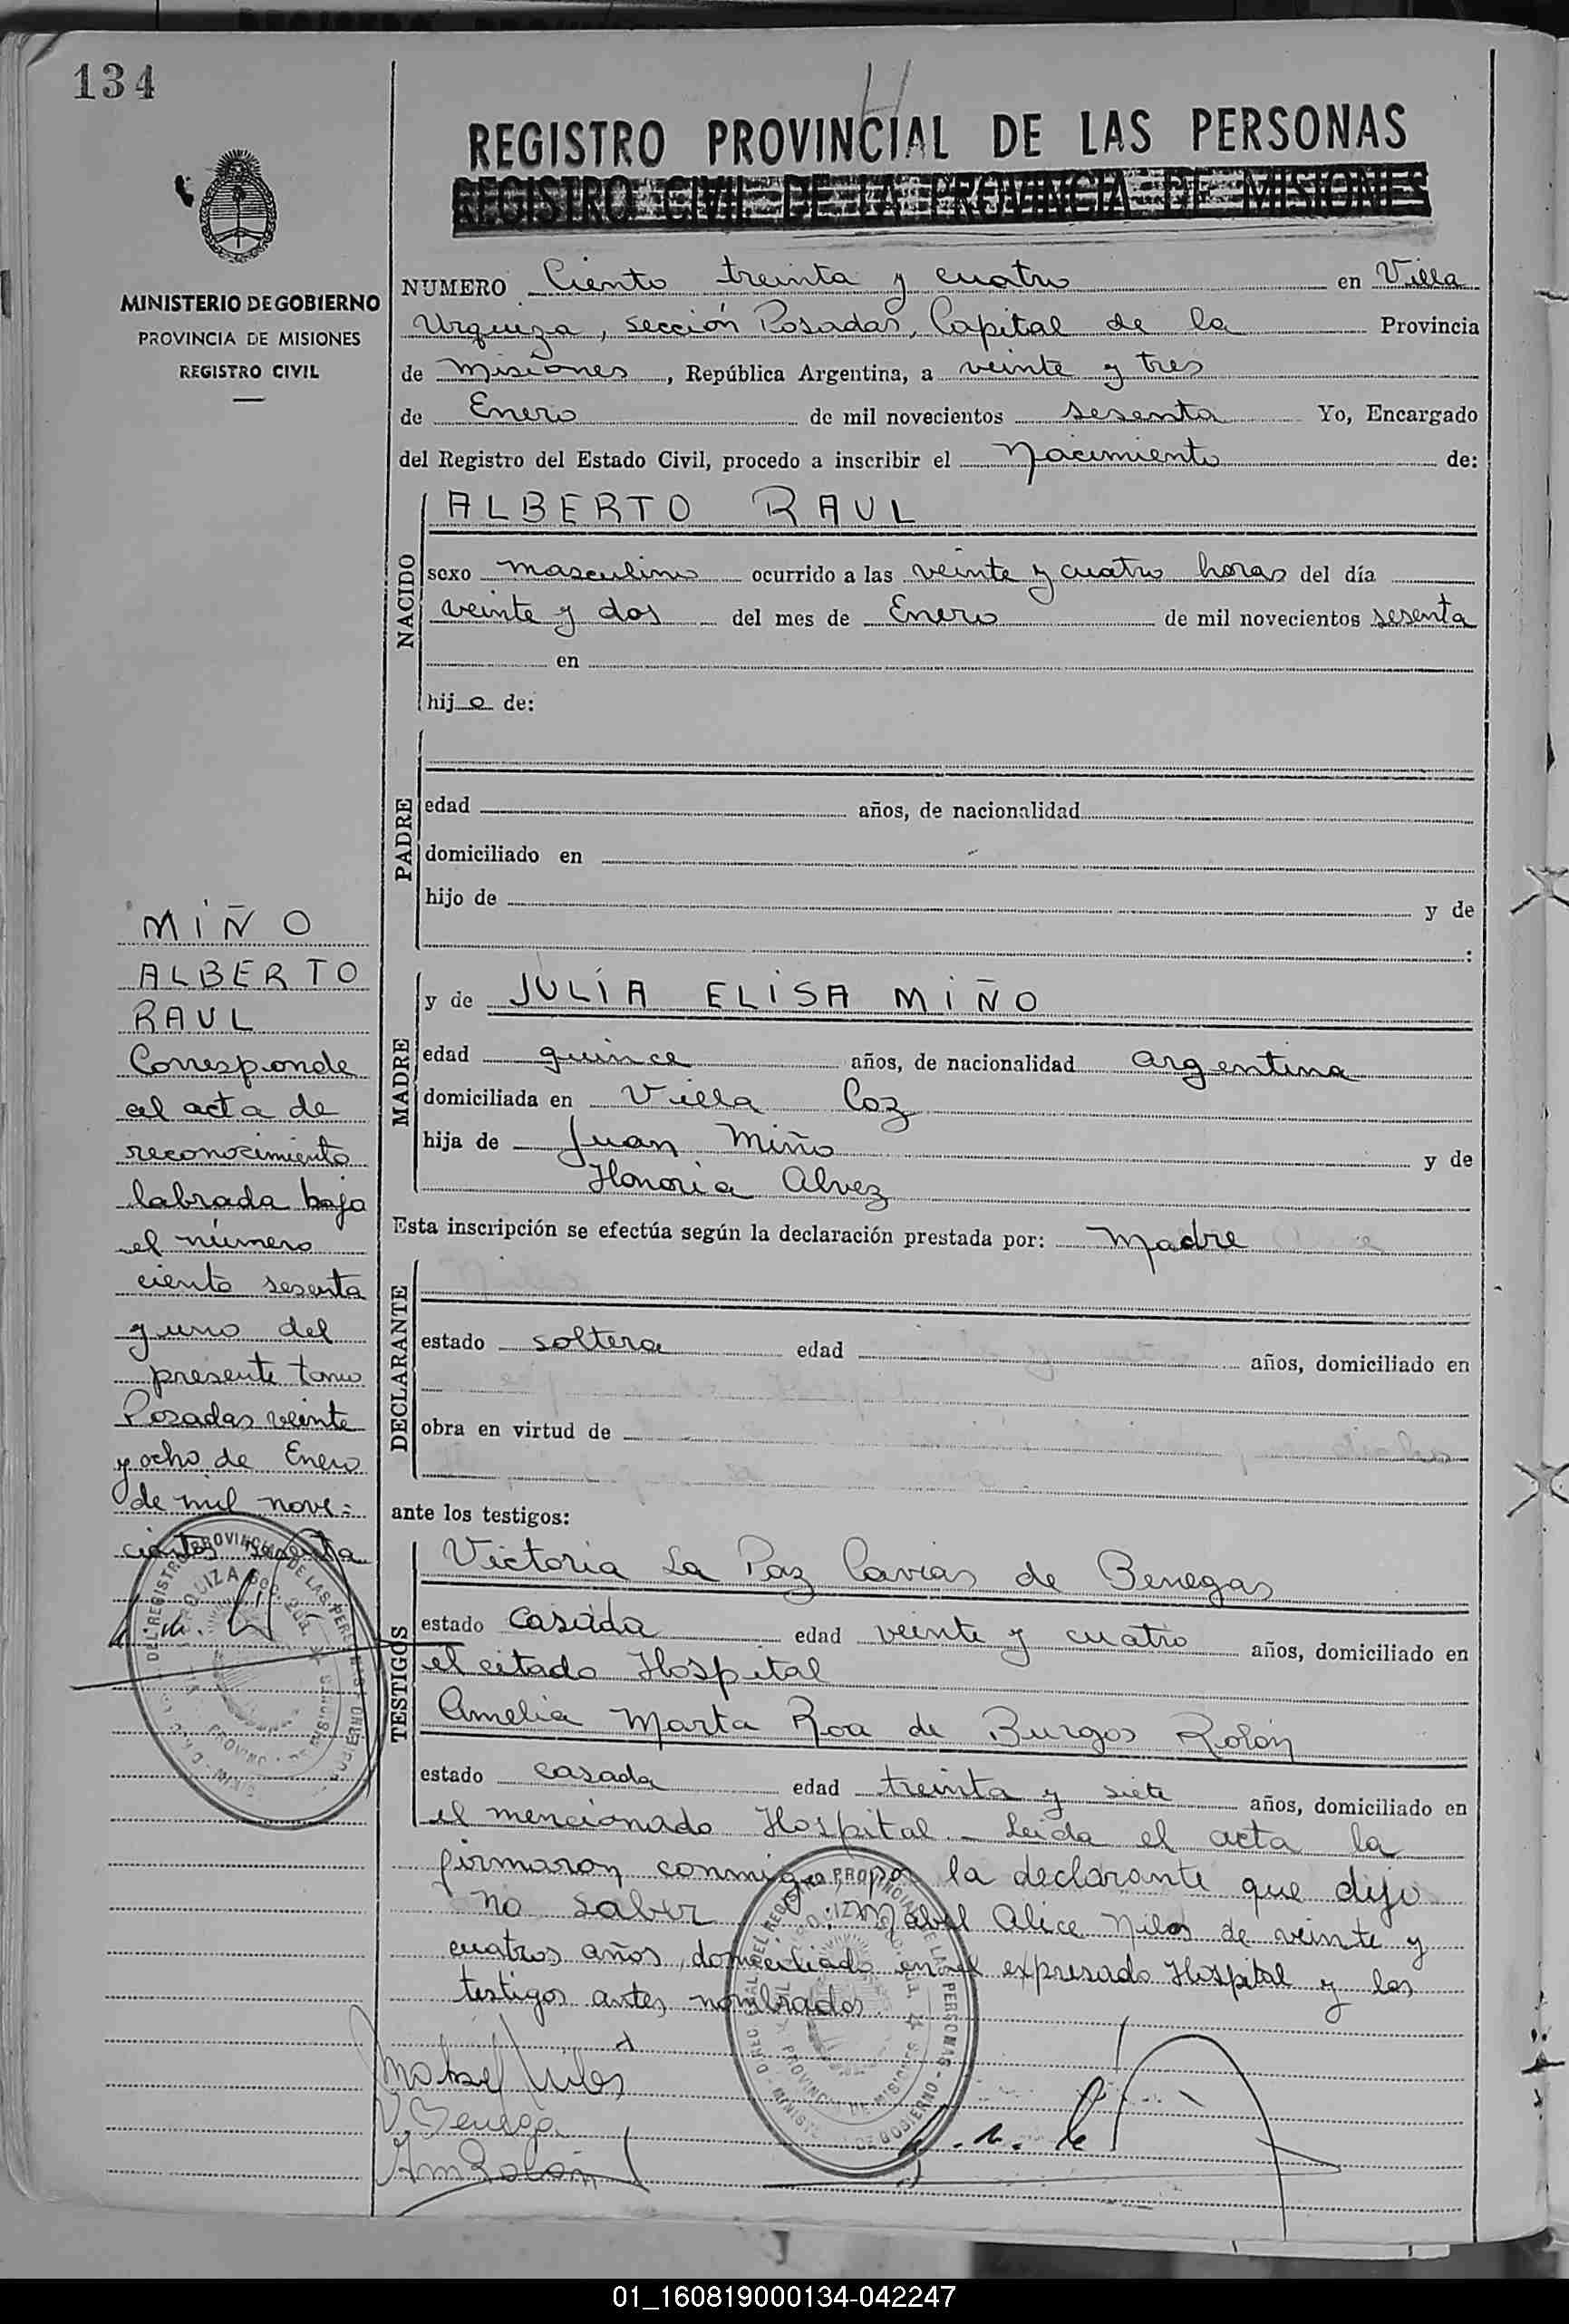 134
REGISTRO PROVINCIAL DE LAS PERSONAS
REGISTRO CIVIL DE LA PROVINCIA DE MISIONES
MINISTERIO DE GOBIERNO
PROVINCIA DE MISIONES
REGISTRO CIVIL
NUMERO Ciento treinta y cuatro en Villa
Urquiza, sección Posadas, Capital de la Provincia
de Misiones, República Argentina, a veinte y tres
de Enero de mil novecientos sesenta Yo, Encargado
del Registro del Estado Civil, procedo a inscribir el Nacimiento de:
NACIDO
ALBERTO RAUL
sexo masculino ocurrido a las veinte y cuatro horas del día
veinte y dos del mes de Enero de mil novecientos sesenta
en
hijo de:
PADRE
edad años, de nacionalidad
domiciliado en
hijo de y de
:
MADRE
y de JULIA ELISA MIÑO
edad quince años, de nacionalidad argentina
domiciliada en Villa Coz
hija de Juan Miño y de
Honoria Alvez
Esta inscripción se efectúa según la declaración prestada por: Madre
DECLARANTE
estado soltera edad años, domiciliado en
obra en virtud de
ante los testigos:
TESTIGOS
Victoria La Paz Cavias de Benegas
estado casada edad veinte y cuatro años, domiciliado en
el citado Hospital
Amelia Marta Roa de Burgos Rolón
estado casada edad treinta y siete años, domiciliado en
el mencionado Hospital. - Leida el acta la
firmaron conmigo, por la declarante que dijo
no saber Mabel Alice Nilos de veinte y
cuatros años, domiciliado en el expresado Hospital y los
testigos antes nombrados.
MIÑO
ALBERTO
RAUL
Corresponde
al acta de
reconocimiento
labrada bajo
el número
ciento sesenta
y uno del
presente tomo
Posadas veinte
y ocho de Enero
de mil nove=
cientos sesenta
Mabel Nilos
V Benega
AmRolón
01_160819000134-042247